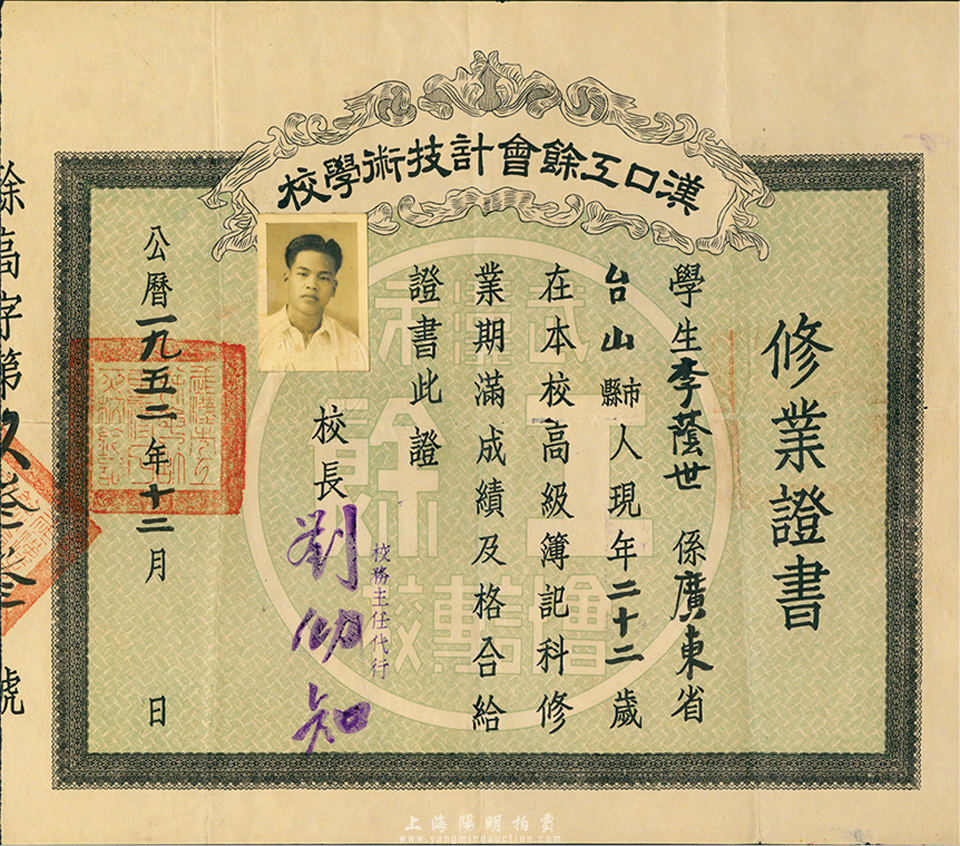 漢口工餘會計技術學校
修業證書
學生李蔭世 係廣東省
台山市縣人現年二十二歲
在本校高級簿記科修
業期滿成績及格合給
證書此證
校長劉仰知
校務主任代行
公曆一九五二年十二月 日
餘高字第 號
武漢市
工餘
會計專校
上海陽明拍賣
www.yangmingauction.com